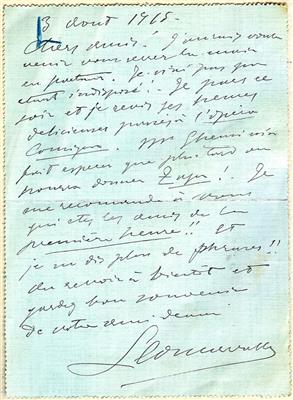 3 Aout 1915.
Chers amis! J'aurais voulu
venir vous serrer la main
en partant. Je n'ai pas pu
étant indisposé. Je pars ce
soir et je revois les heures
délicieuses passées à l'Opéra
Comique. Mr Gheusi m'a
fait espérer que plus tard on
pourra donner Zaza! Je
me recommande à vous
qui êtes les amis de la
première heure!! Et
je ne dis plus de phrases!!
Au revoir à bientôt et
gardez bon souvenir
de votre ami
Leoncavallo